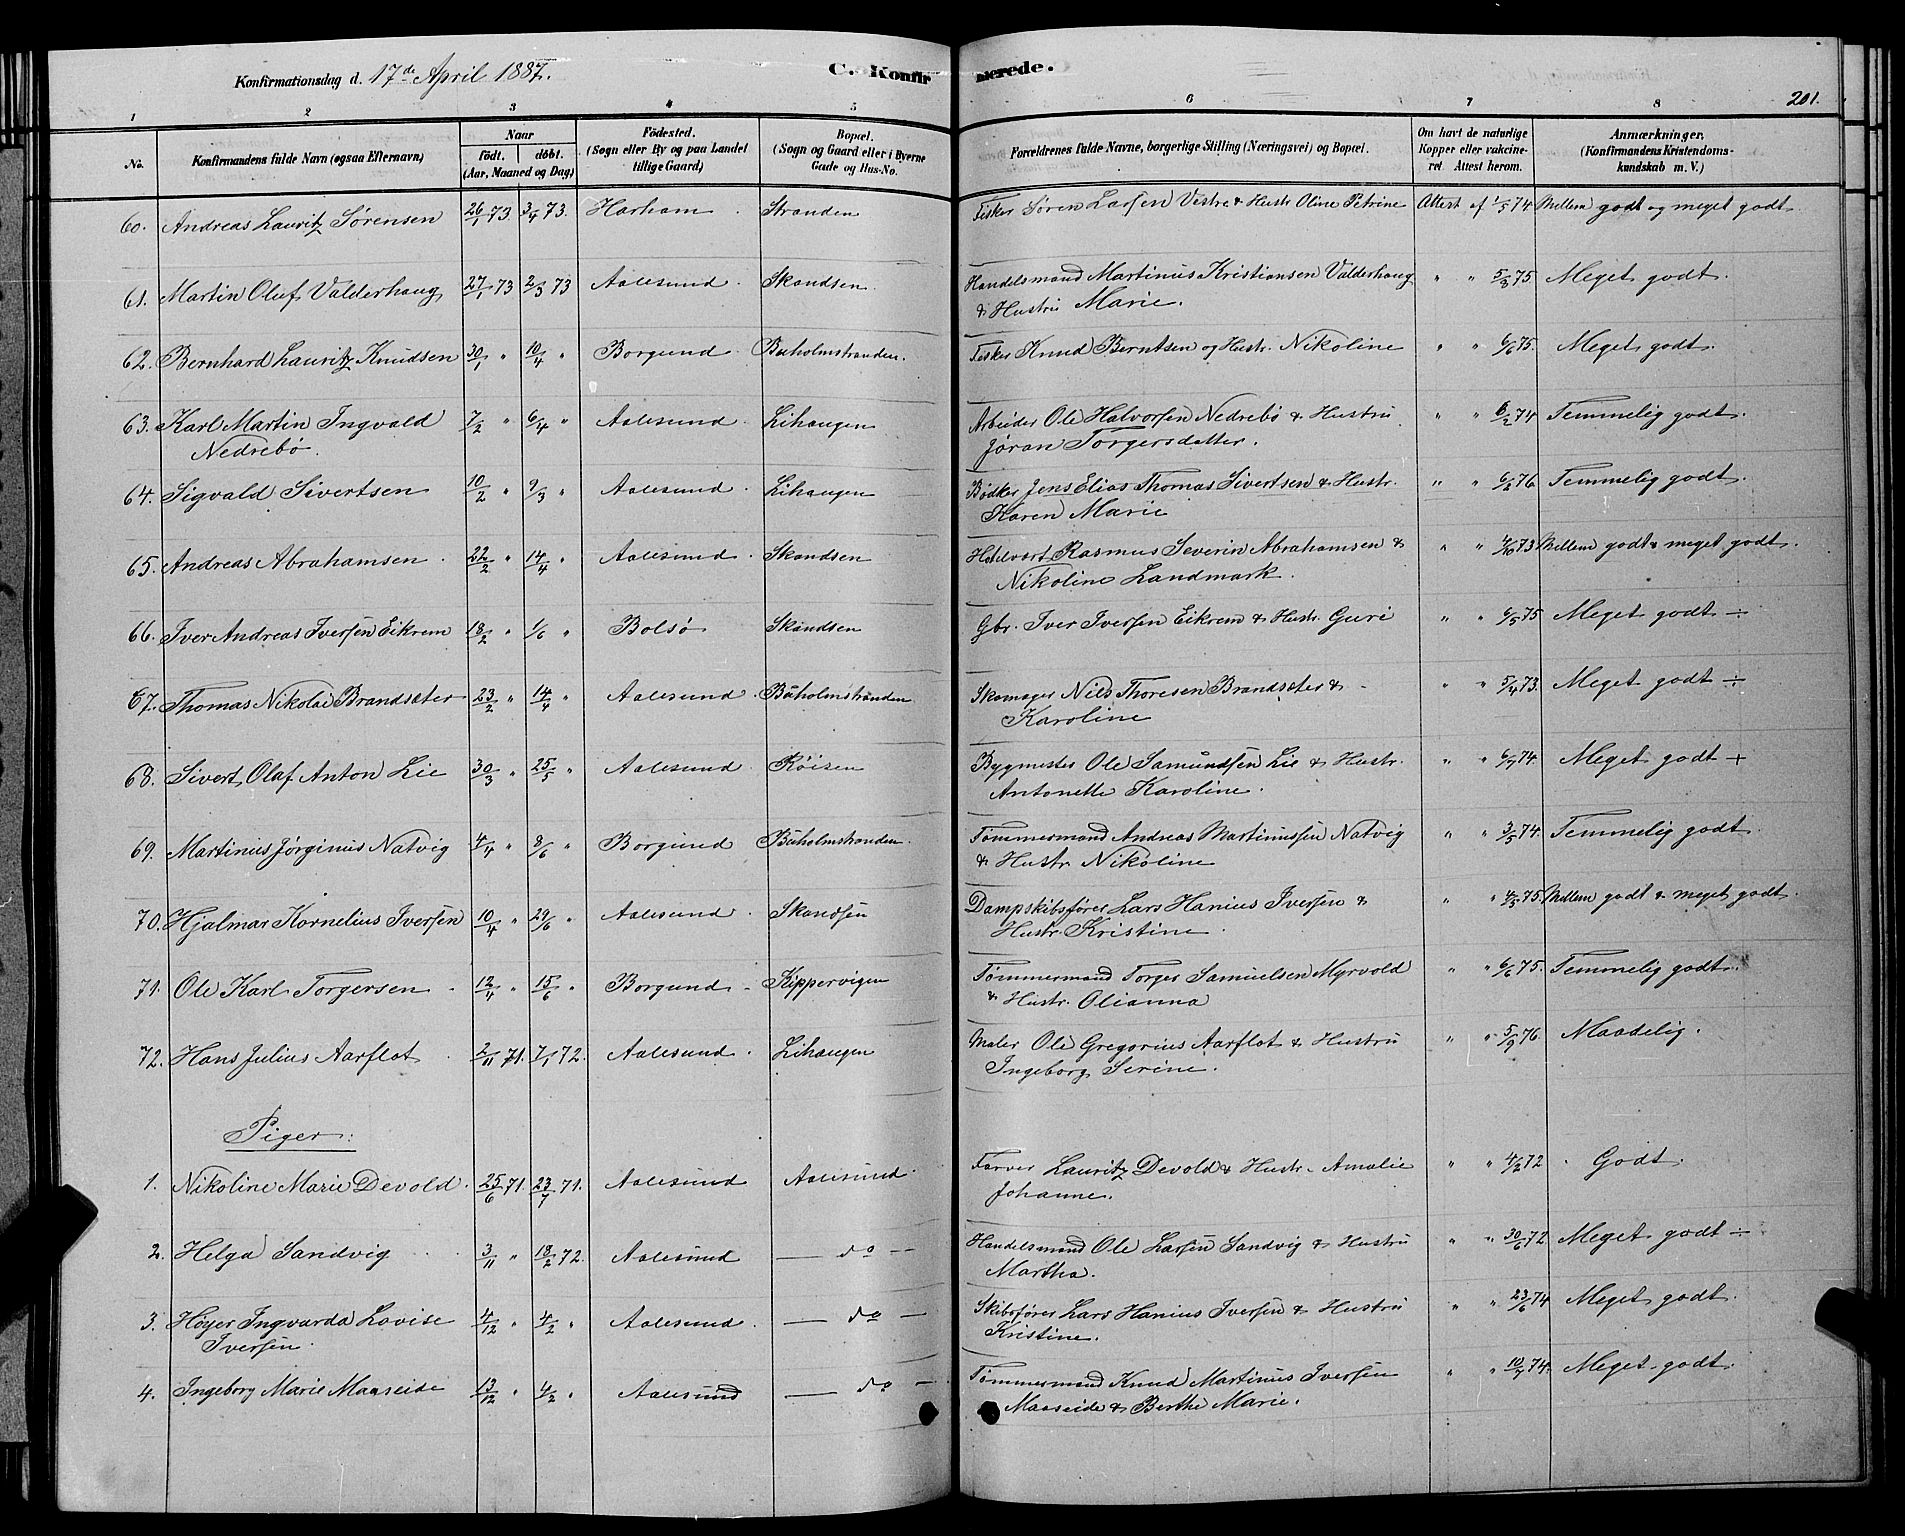 Konfirmationsdag d. 17de April 1887.
C. Konfirmerede.
201.
1 2 3 4 5 6 7 8
No. Konfirmandens fulde Navn (ogsaa Efternavn) Naar födt. döbt. (Aar, Maaned og Dag) Födested. (Sogn eller By og paa Landet tillige Gaard) Bopæl. (Sogn og Gaard eller i Byerne Gade og Hus-No. Forældrenes fulde Navne, borgerlige Stilling (Næringsvei) og Bopæl. Om havt de naturlige Kopper eller vakcineret. Attest herom. Anmærkninger, (Konfirmandens Kristendomskundskab m. V.)
60. Andreas Lauritz Sørensen 26/1 73 3/4 73. Harham Stranden Fisker Søren Larsen Vestre & Hustr. Oline Petrine Attest af 1/5 74 Mellem godt og meget godt
61. Martin Oluf Valderhaug 27/1 73 2/3 73 Aalesund Skandsen Handelsmand Martinus Kristiansen Valderhaug " " 5/8 75. Meget godt.
& Hustru Marie.
62. Bernhard Lauritz Knudsen 30/1 " 10/4 " Borgund Buholmstranden. Fisker Knud Berntsen og Hustr. Nikoline " " 6/6 75. Meget godt.
63. Karl Martin Ingvald 7/2 " 6/4 " Aalesund Lihaugen Arbeider Ole Halvorsen Nedrebø & Hustru " " 6/2 74 Temmelig godt.
Nedrebø. Jøran Torgersdatter.
64. Sigvald Sivertsen 10/2 " 9/3 " Aalesund Lihaugen Bødker Jens Elias Thomas Sivertsen & Hustr. " " 6/2 76 Temmelig godt.
Karen Marie
65. Andreas Abrahamsen 22/2 " 14/4 " Aalesund Skandsen Hotelvært Rasmus Severin Abrahamsen & " " 4/10 73 Mellem godt & meget godt.
Nikoline Landmark.
66. Iver Andreas Iversen Eikrem 18/2 " 1/6 " Bolsø Skandsen Gbr. Iver Iversen Eikrem & Hustr. Guri " " 6/5 75 Meget godt ÷
67. Thomas Nikolai Brandsæter 23/2 " 14/4 " Aalesund Buholmstranden Skomager Nils Thoresen Brandsæter & " " 5/4 73. Meget godt ÷
Karoline
68. Sivert Olaf Anton Lie 30/3 " 25/5 " Aalesund Röisen Bygmester Ole Samundsen Lie & Hustr. " " 6/7 74. Meget godt +
Antonette Karoline.
69. Martinus Jørginus Natvig 4/4 " 8/6 " Borgund Buholmstranden Tømmermand Andreas Martinussen Natvig " " 3/5 74. Temmelig godt
& Hustr. Nikoline
70. Hjalmar Kornelius Iversen 10/4 " 29/6 " Aalesund Skandsen Dampskibsfører Lars Hanius Iversen & " " 4/3 75. Mellem godt & meget godt.
Hustr. Kristine
71. Ole Karl Torgersen 12/4 " 15/6 " Borgund Kippervigen Tømmermand Torger Samuelsen Myrvold " " 6/6 75. Temmelig godt.
& Hustr. Olianna
72. Hans Julius Aarflot 2/11 71. 7/1 72. Aalesund Lihaugen Maler Ole Gregorius Aarflot & Hustru " " 5/9 76. Maadelig.
Ingeborg Serine.
Piger:
1. Nikoline Marie Devold. 25/6 71. 23/7 71. Aalesund Aalesund Farver Lauritz Devold & Hustr. Amalie " " 4/2 72 Godt.
Johanne.
2. Helga Sandvig 3/11 " 18/2 72. Aalesund — do — Handelsmand Ole Larsen Sandvig & Hustru " " 30/6 72 Meget godt ÷
Martha.
3. Høyer Ingvarda Lovise 4/12 " 4/2 " Aalesund — do — Skibsfører Lars Hanius Iversen & Hustru " " 23/6 74 Meget godt.
Iversen. Kristine.
4. Ingeborg Marie Maaseide 13/12 " 4/2 " Aalesund — do — Tømmermand Knud Martinus Iversen " " 10/7 74. Meget godt.
Maaseide & Berthe Marie.